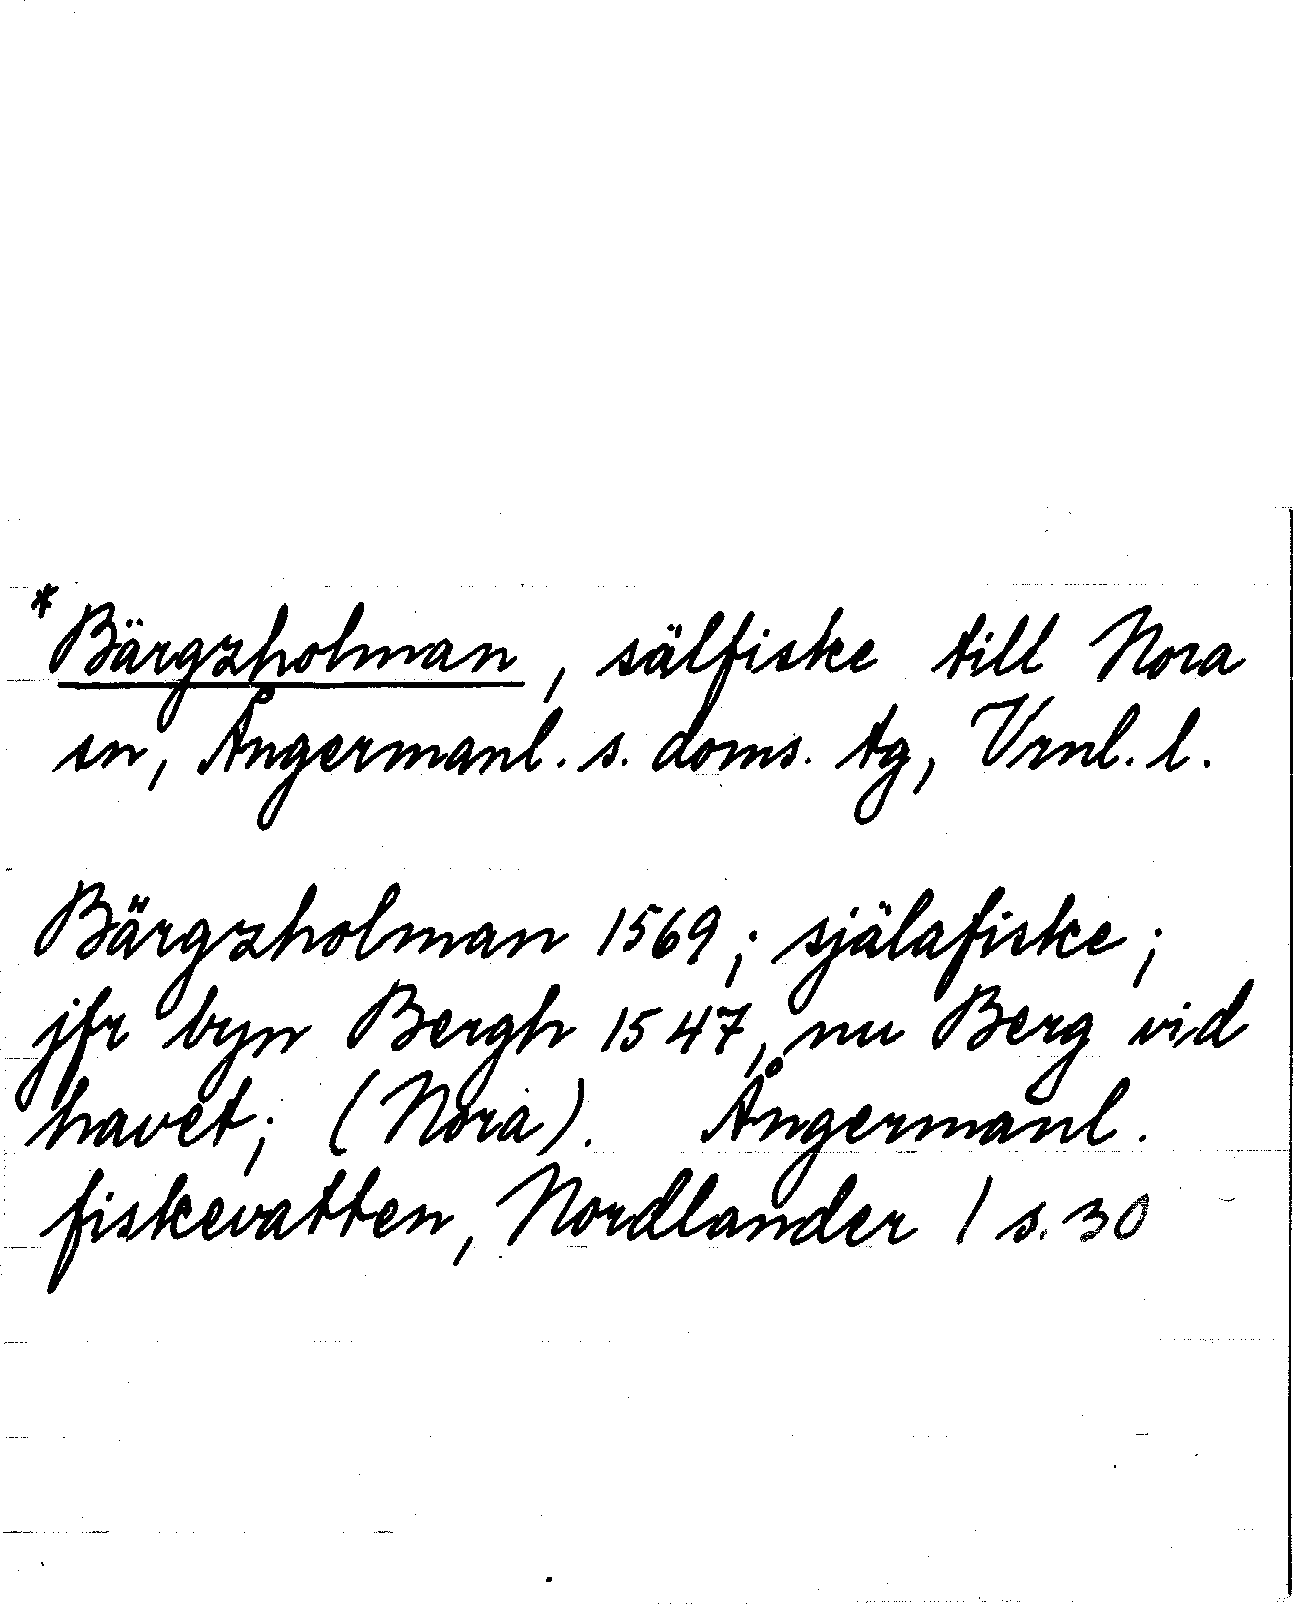 *Bärgzholman, sälfiske till Nora
sn, Ångermanl. s. doms. tg, Vrnl. l.
Bärgzholman 1569; själafiske;
jfr byn Bergh 1547, nu Berg vid
havet; (Nora). Ångermanl.
fiskevatten, Nordlander 1 s. 30